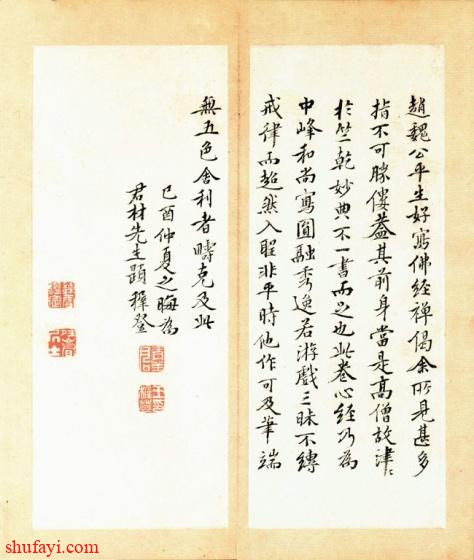 趙魏公平生好寫佛經禅偈余所見甚多
指不可勝僂葢其前身當是高僧故津ミ
於竺乾妙典不一書而足也此卷心經乃為
中峰和尚寫圓融秀逸若游戲三昧不縛
戒律而超然入聖非平時他作可及筆端
無五色舍利者疇克及此
己酉仲夏之晦為
君材先生題穉登
shufayi.com